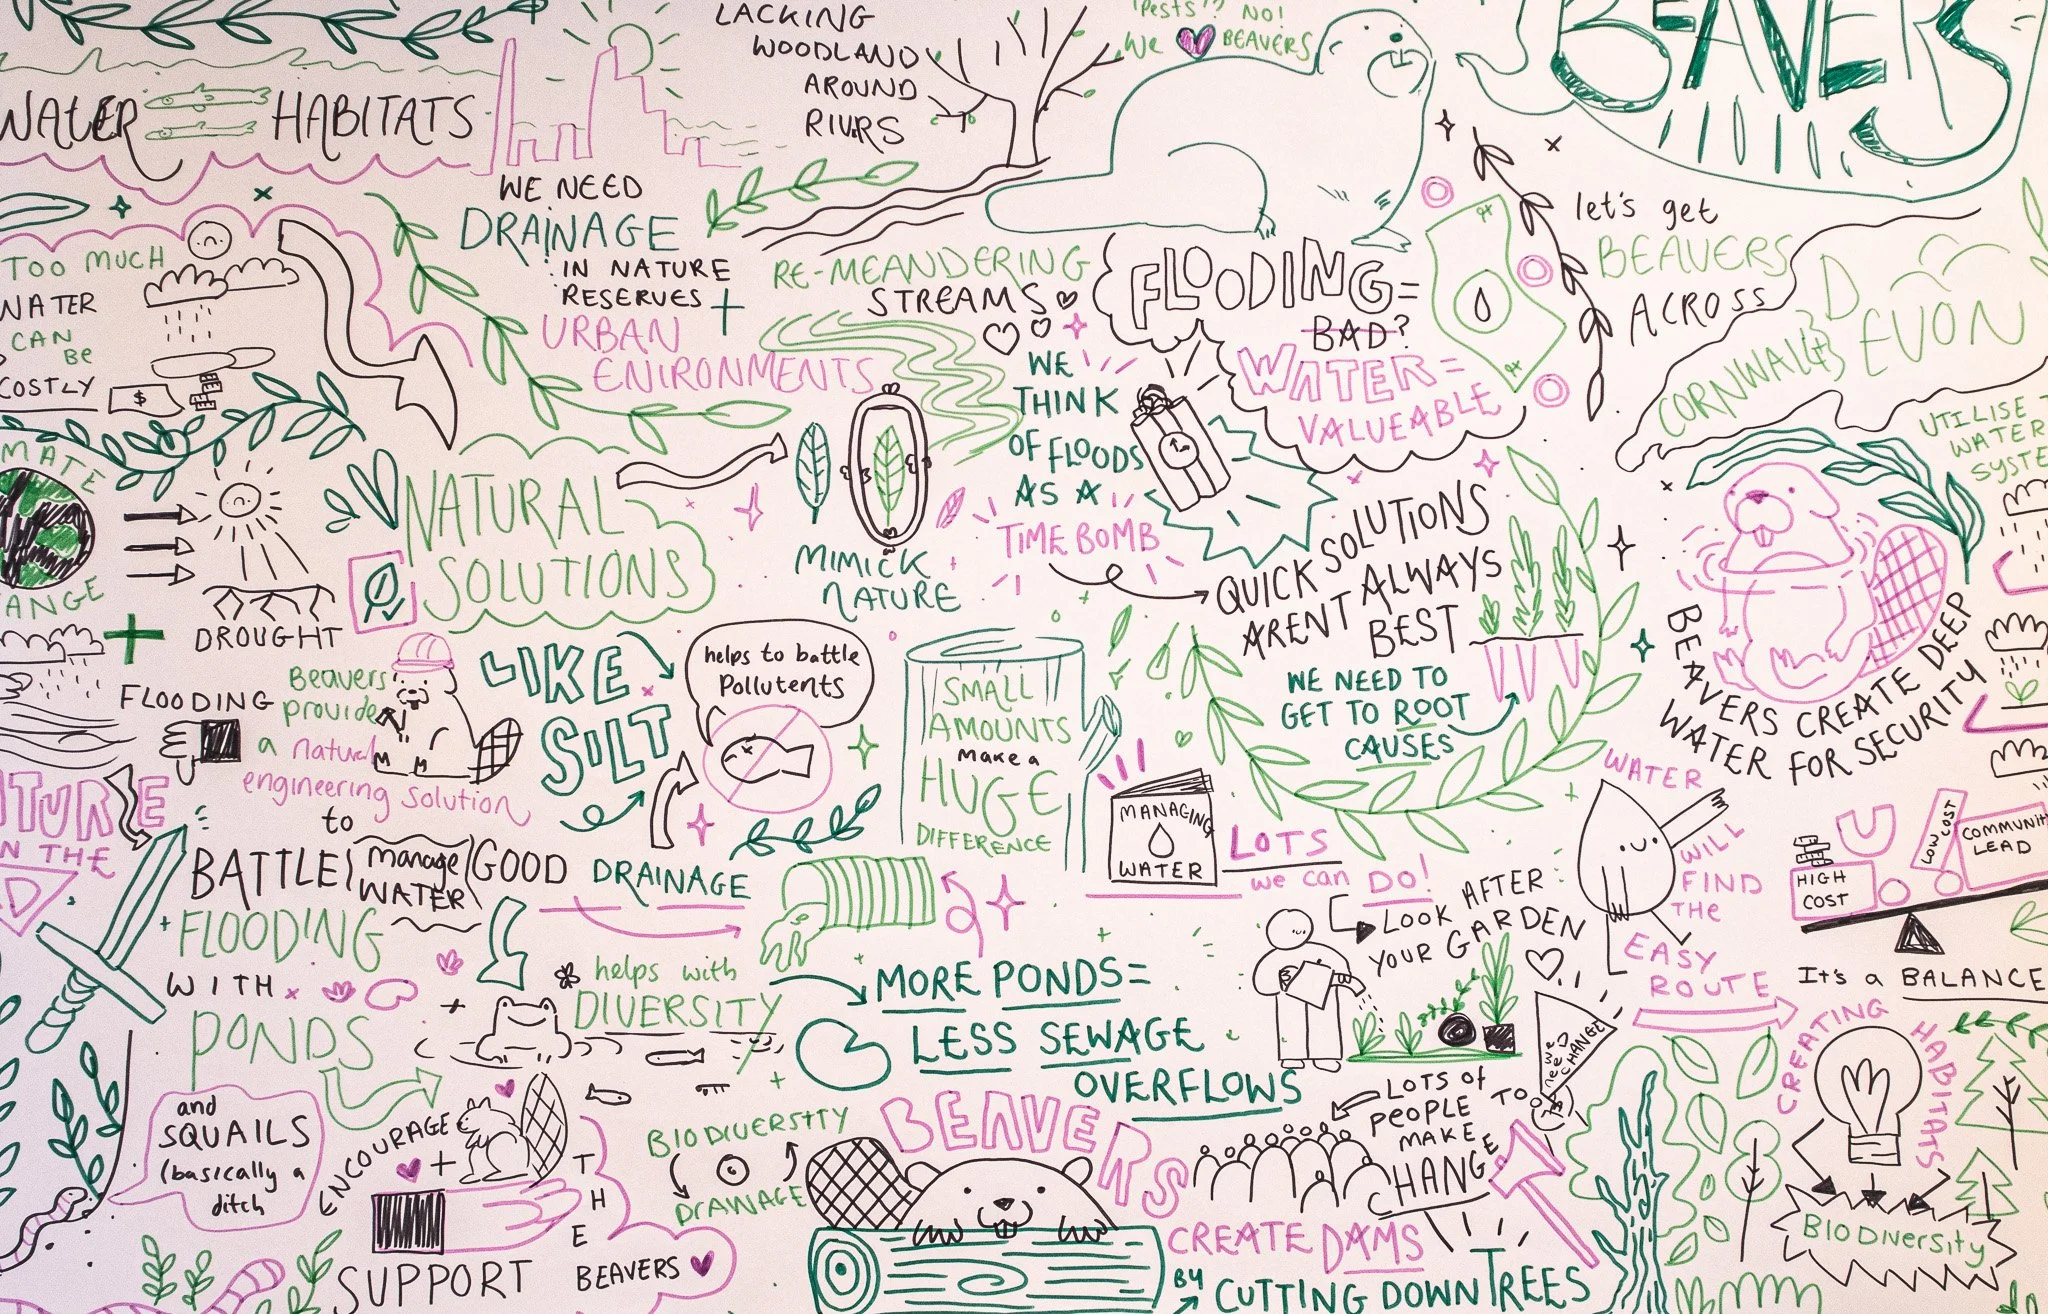 LACKING
WOODLAND
AROUND
RIVRS
"PESTS"? NO!
We BEAVERS
BEAVERS
WATER HABITATS
WE NEED
DRAINAGE
IN NATURE
RESERVES +
URBAN
ENIRONMENTS
TOO MUCH
WATER
CAN
BE
COSTLY
$
RE-MEANDERING
STREAMS
FLOODING =
BAD?
WATER =
VALUEABLE
let's get
BEAVERS
ACROSS
DEVON
CORNWALL +
UTILISE
WATER
SYSTE
WE
THINK
OF FLOODS
AS A
TIME BOMB
QUICK SOLUTIONS
ARENT ALWAYS
BEST
WE NEED TO
GET TO ROOT
CAUSES
MATE
ANGE
+
DROUGHT
FLOODING
NATURAL
SOLUTIONS
MIMICK
NATURE
BEAVERS CREATE DEEP
WATER FOR SECURITY
Beavers
provide
a natural
engineering solution
to
BATTLE
FLOODING
WITH
PONDS
manage
WATER
GOOD DRAINAGE
LIKE
SILT
helps to battle
Pollutents
SMALL
AMOUNTS
make a
HUGE
DIFFERENCE
MANAGING
WATER
LOTS
we can DO!
LOOK AFTER
YOUR GARDEN
WATER
WILL
FIND
THe
EASY
ROUTE
HIGH
COST
LOW COST
COMMUNIT
LEAD
It's a BALANCE
TURE
N THE
D
and
SQUAILS
(basically a
ditch
helps with
DIVERSITY
MORE PONDS =
LESS SEWAGE
OVERFLOWS
ENCOURAGE
+
SUPPORT
THE
BEAVERS
BIODIVERSITY
DRAINAGE
BEAVERS
CREATE DAMS
BY CUTTING DOWN TREES
LOTS of
PEOPLE TOO
MAKE
CHANGE
we neeD
CHANGE
CREATING HABITATS
BIODIVERSITY